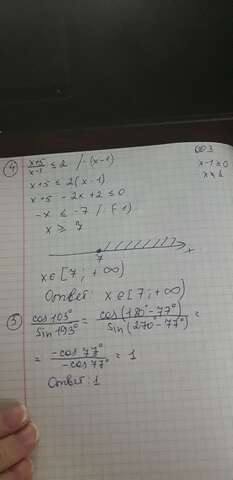 ④ (x+5)/(x-1) ≤ 2 /·(x-1)
x+5 ≤ 2(x-1)
x+5 -2x+2 ≤ 0
-x ≤ -7 /·(-1)
x ≥ 7
7 x
x∈[7; +∞)
Ответ: x∈[7; +∞)
⑤ cos 103°/sin 193° = cos(180°-77°)/sin(270°-77°) =
= -cos 77°/-cos 77° = 1
Ответ: 1